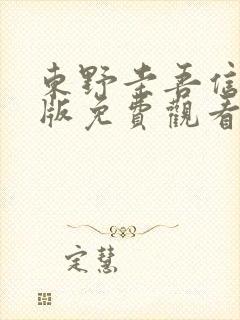 東野圭吾信
版免費觀看
定慧